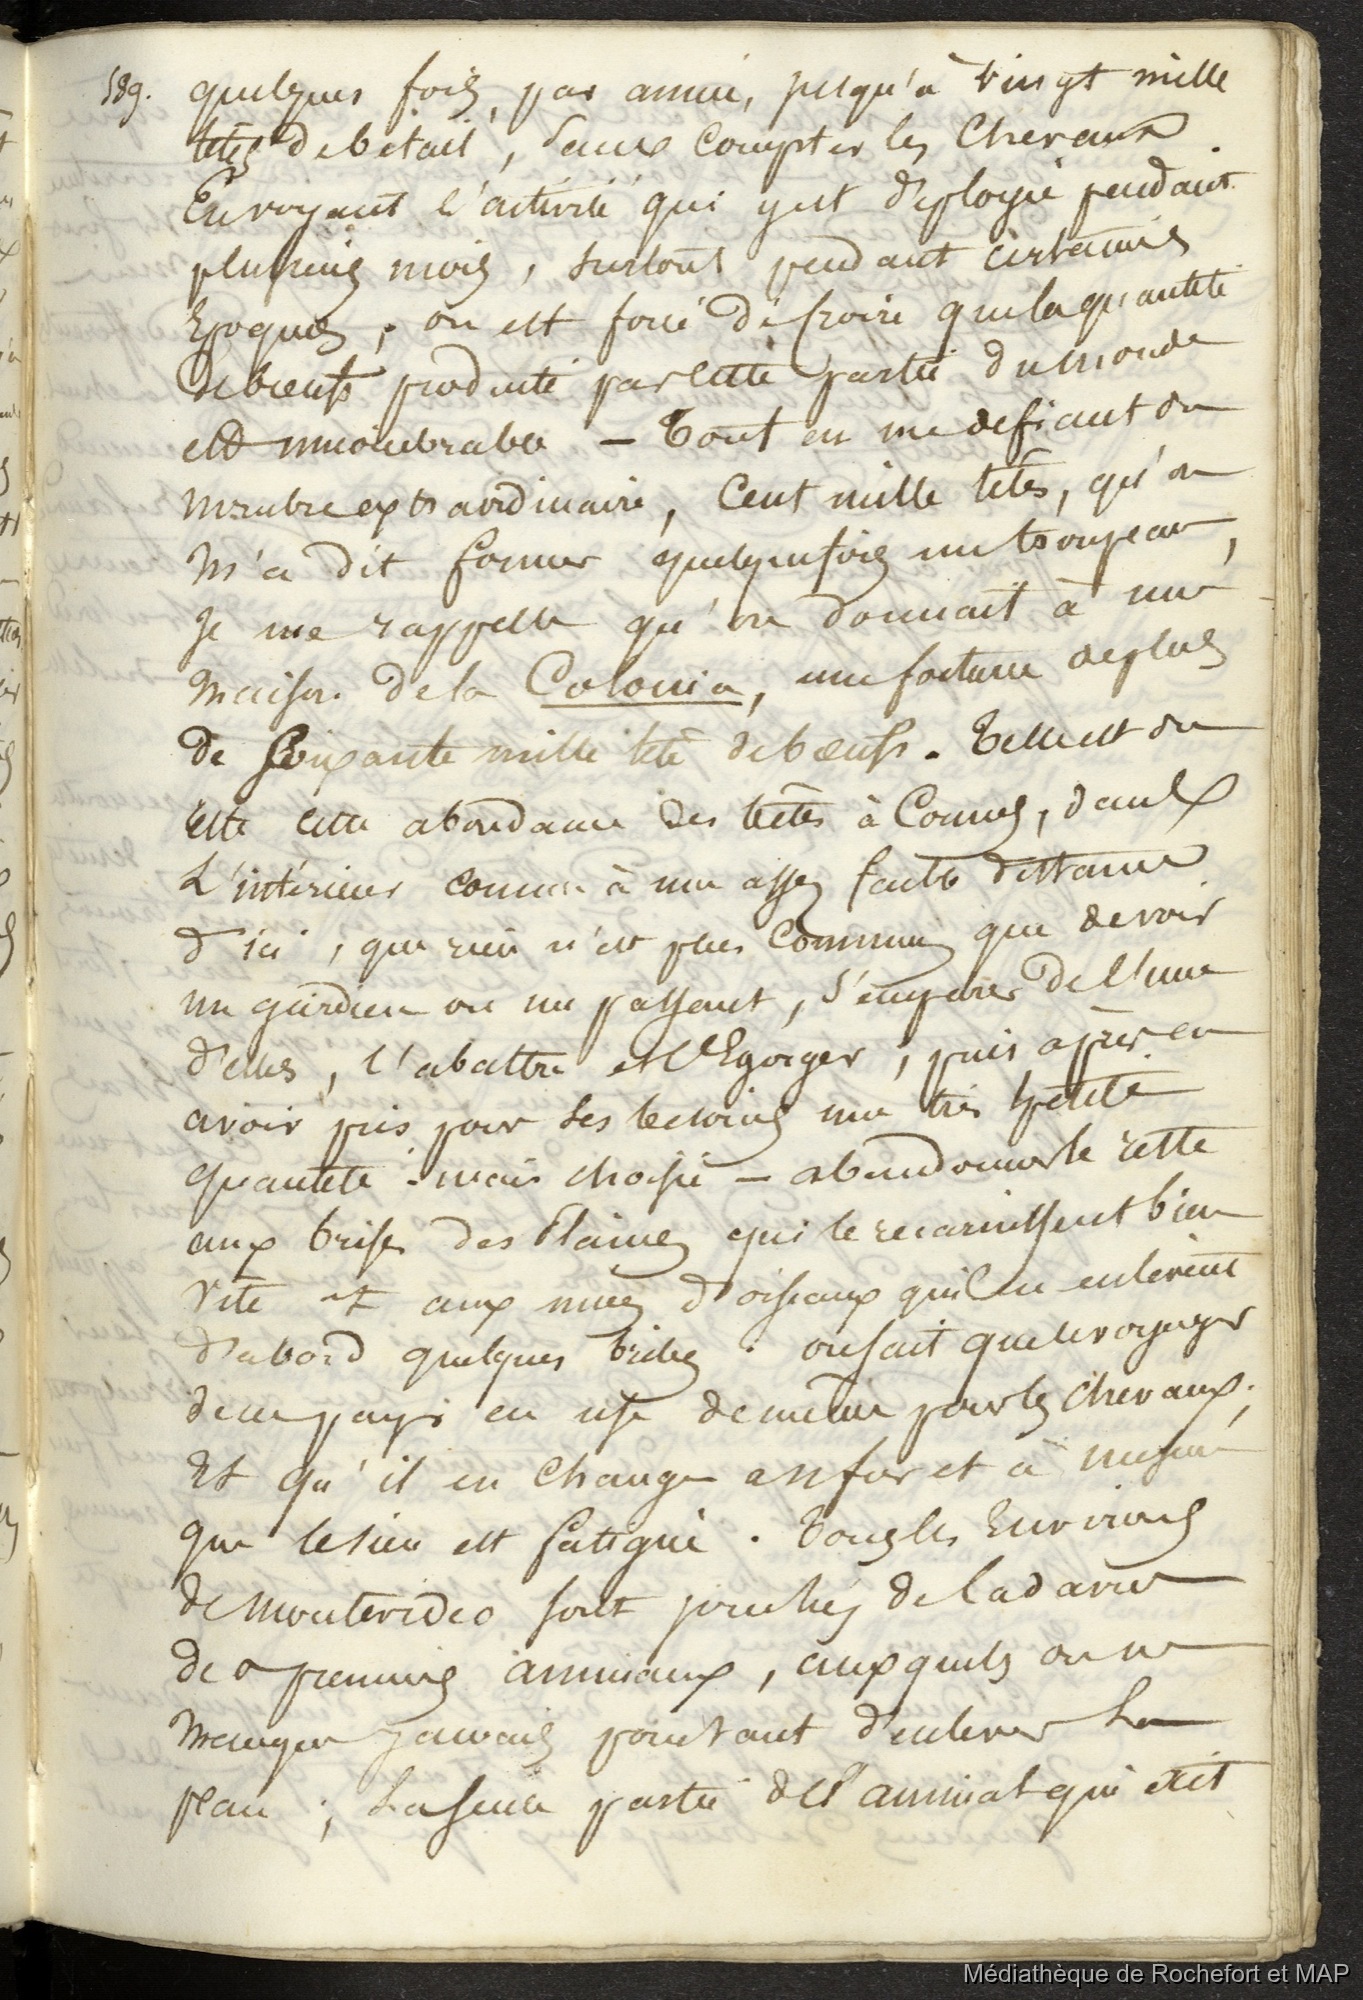 589. quelques fois, par année, jusqu'à vingt mille
têtes de bétail, sans compter les Chevaux.
En voyant l'activité qui y est déployée pendant
plusieurs mois, surtout pendant certaines
Epoques, on est forcé de croire que la quantité
de bœufs produite par cette partie du monde
est innombrable — Tout en me defiant du
nombre extraordinaire, Cent mille têtes, qu'on
m'a dit former quelquefois un troupeau,
je me rappelle qu'on donnait à une
maison de la Colonia, une fortune de plus
de soixante mille tête de bœufs. Telle est du
reste cette abondance des têtes à Cornes, dans
L'intérieur comme à une assez faible distance
d'ici, que rien n'est plus Commun que de voir
un gardien ou un passant, s'emparer de l'une
d'elles, l'abattre et l'Egorger, puis après en
avoir pris pour ses besoins une très petite
quantité . mais choisie — abandonner le reste
aux brises des Plaines qui le racornissent bien
vite et aux nuées d'oiseaux qui en enlèvent
d'abord quelques bribes . on sait que le voyager
de ce pays en use de même pour les Chevaux;
Et qu'il en change au fur et à mesure
que le sien est fatigué . Tous les Environs
de Montevideo sont jonchés de Cadavres
de premiers animaux, auxquels on ne
manque jamais pourtant d'enlever La
peau ; La seule partie de l'animal qui était
Médiathèque de Rochefort et MAP